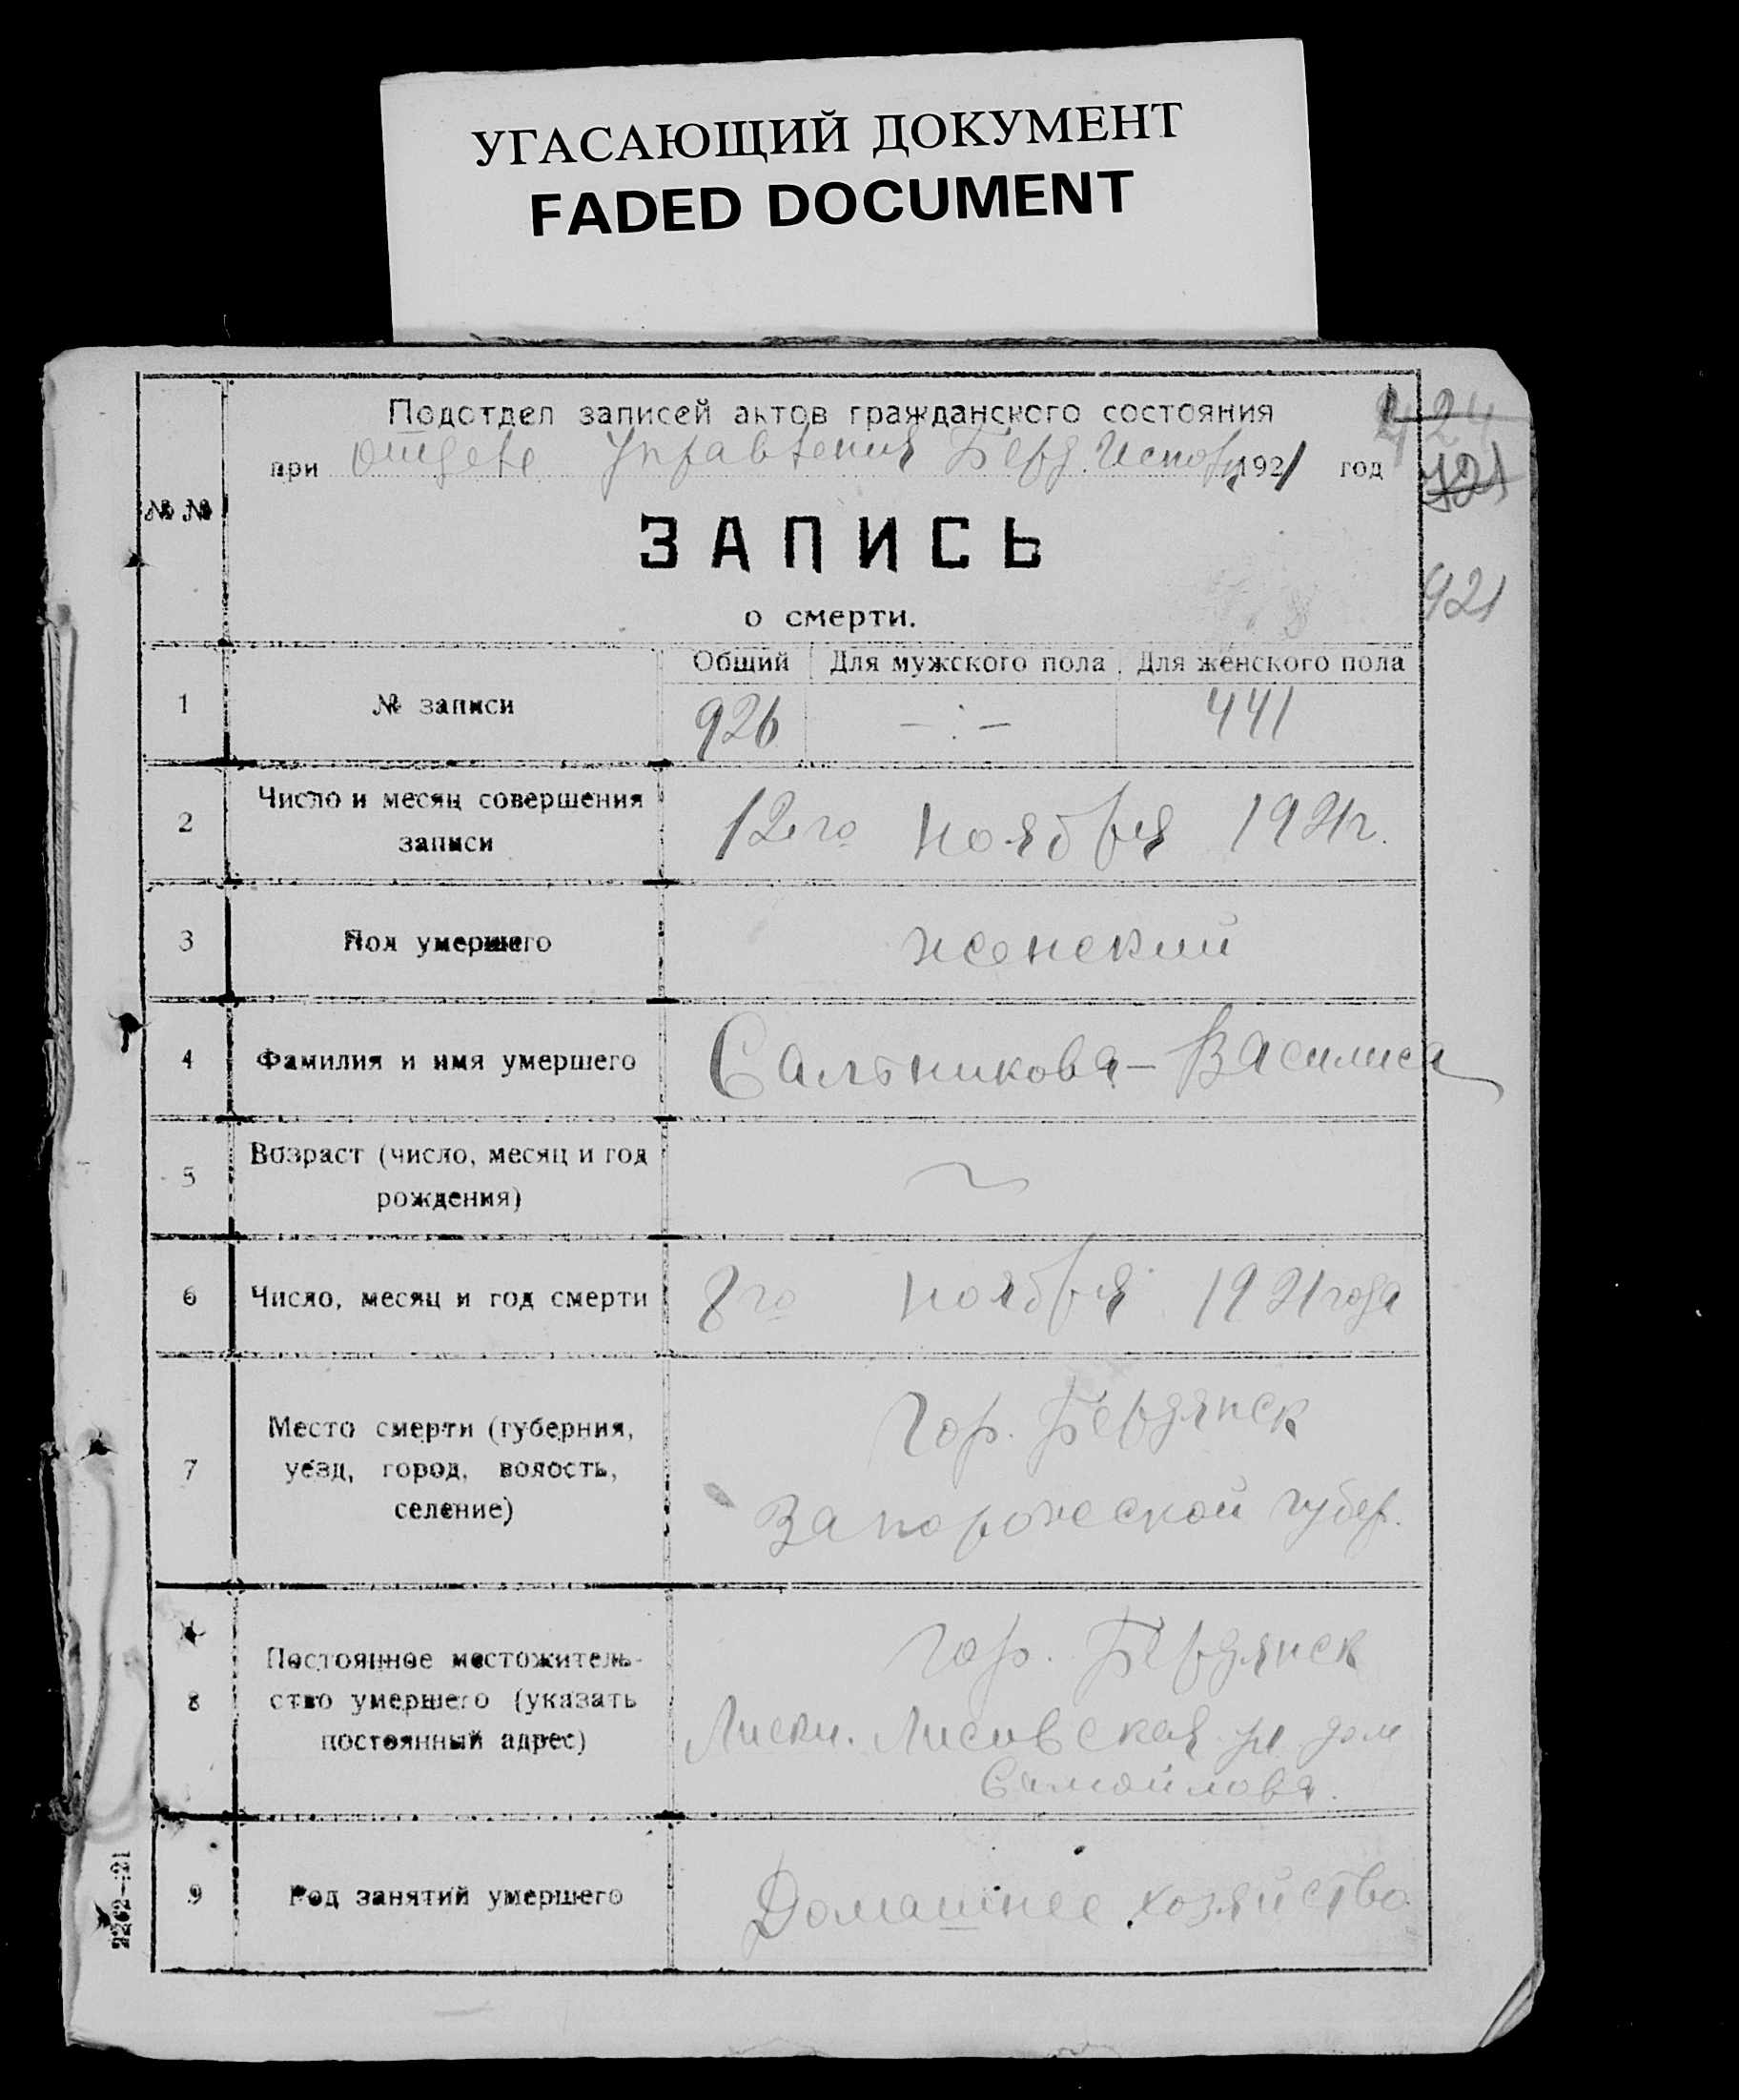 УГАСАЮЩИЙ ДОКУМЕНТ
FADED DOCUMENT
Подотдел записей актов гражданского состояния
424
при отделе Управления Берд. Исполк 1921 год
721
№ №
ЗАПИСЬ
921
о смерти.
Общий Для мужского пола Для женского пола
1 № записи 926 — : — 441
2 Число и месяц совершения записи 12го ноября 1921г.
3 Пол умершего женский
4 Фамилия и имя умершего Сальникова - Василиса
5 Возраст (число, месяц и год рождения)
6 Число, месяц и год смерти 8го ноября 1921 года
7 Место смерти (губерния, уезд, город, волость, селение)
Гор. Бердянск
Запорожской губер.
8 Постоянное местожитель-
ство умершего (указать
постоянный адрес)
гор. Бердянск
Лиски. Лисовская ул дом
Самойлова.
9 Род занятий умершего Домашнее хозяйство
2262—21